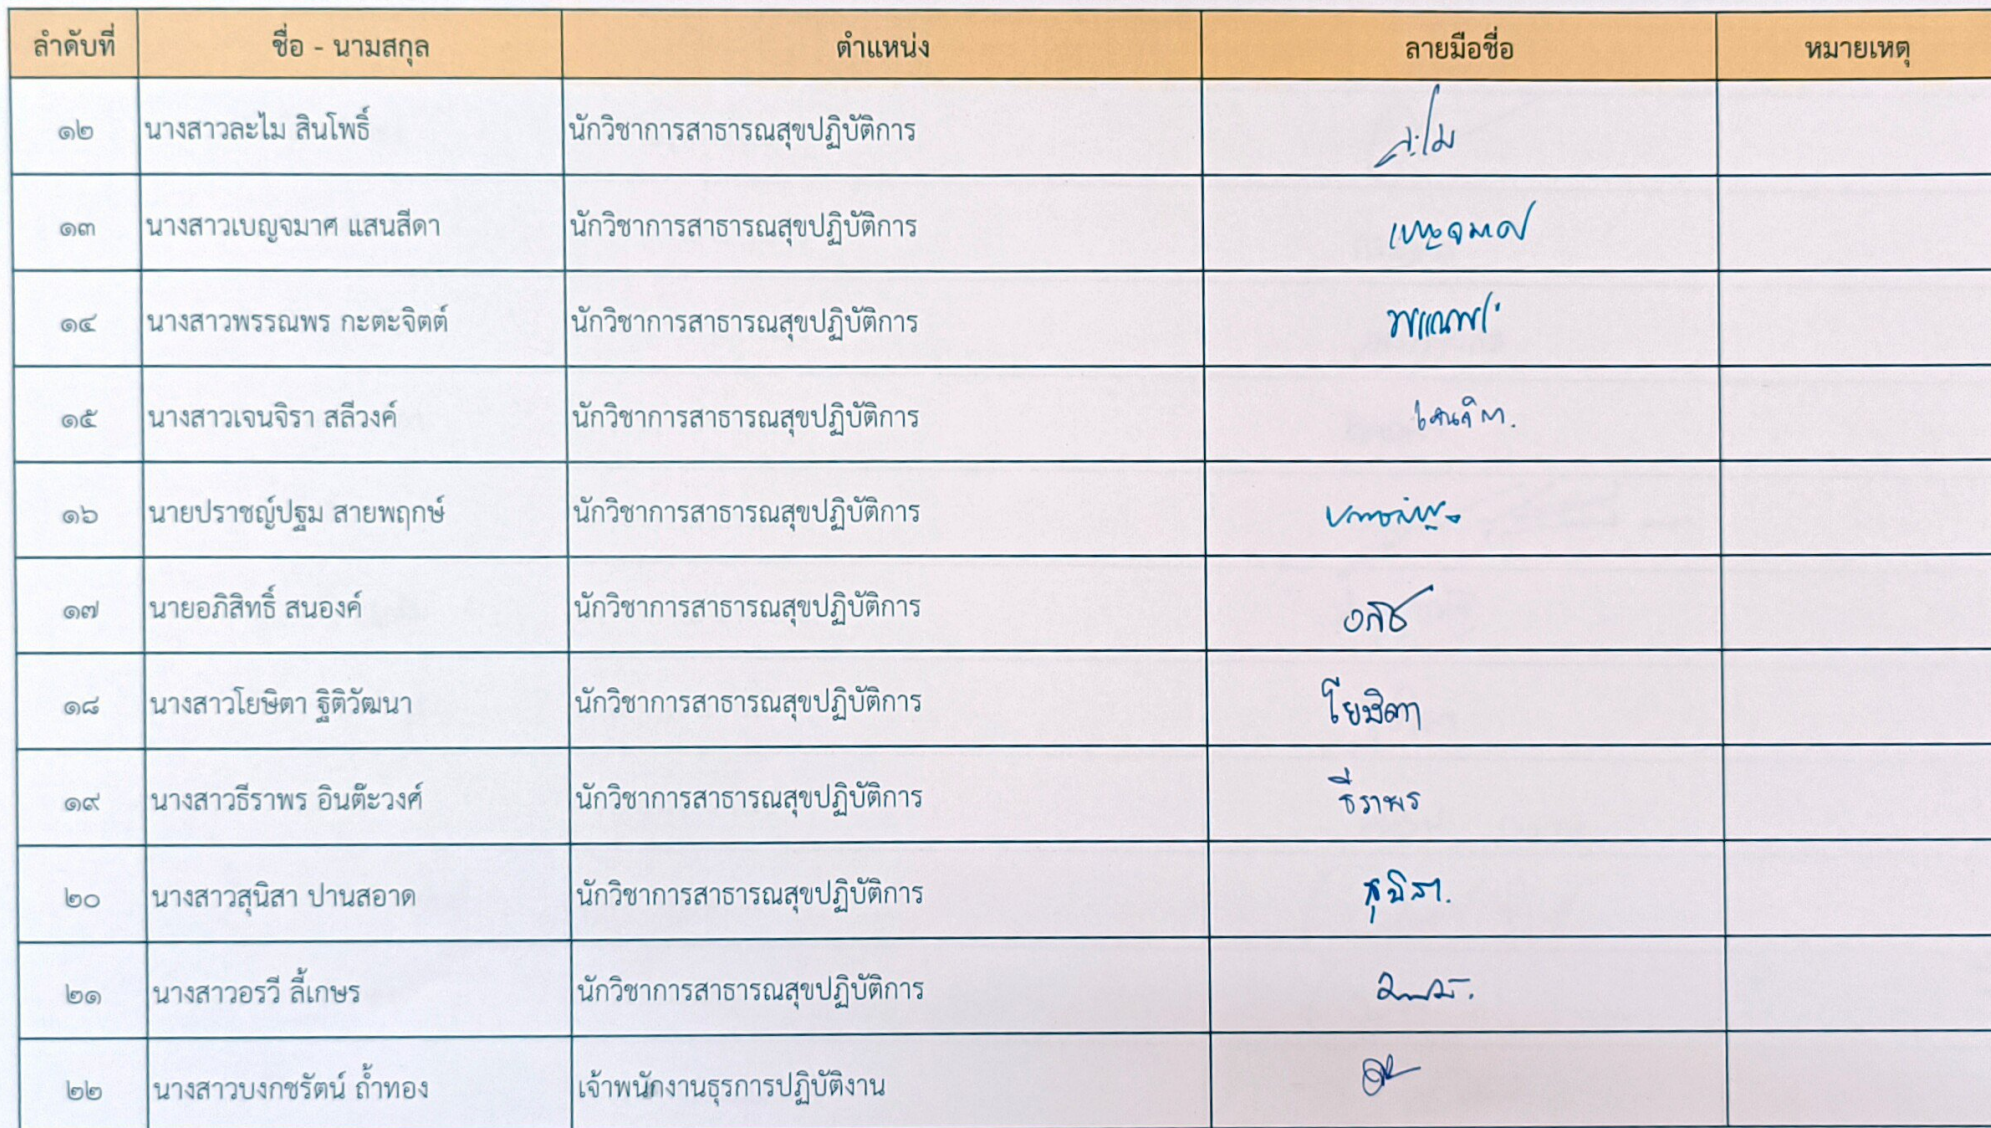 ลำดับที่ ชื่อ - นามสกุล ตำแหน่ง ลายมือชื่อ หมายเหตุ
๑๒ นางสาวละไม สินโพธิ์ นักวิชาการสาธารณสุขปฏิบัติการ ละไม
๑๓ นางสาวเบญจมาศ แสนสีดา นักวิชาการสาธารณสุขปฏิบัติการ เบญจมาศ
๑๔ นางสาวพรรณพร กะตะจิตต์ นักวิชาการสาธารณสุขปฏิบัติการ พรรณพร
๑๕ นางสาวเจนจิรา สลีวงค์ นักวิชาการสาธารณสุขปฏิบัติการ เจนจิรา.
๑๖ นายปราชญ์ปฐม สายพฤกษ์ นักวิชาการสาธารณสุขปฏิบัติการ
๑๗ นายอภิสิทธิ์ สนองค์ นักวิชาการสาธารณสุขปฏิบัติการ
๑๘ นางสาวโยษิตา ฐิติวัฒนา นักวิชาการสาธารณสุขปฏิบัติการ โยษิตา
๑๙ นางสาวธีราพร อินต๊ะวงศ์ นักวิชาการสาธารณสุขปฏิบัติการ ธีราพร
๒๐ นางสาวสุนิสา ปานสอาด นักวิชาการสาธารณสุขปฏิบัติการ สุนิสา.
๒๑ นางสาวอรวี ลี้เกษร นักวิชาการสาธารณสุขปฏิบัติการ
๒๒ นางสาวบงกชรัตน์ ถ้ำทอง เจ้าพนักงานธุรการปฏิบัติงาน